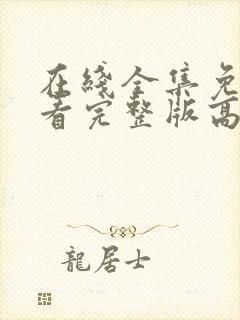 在綫全集免
看完整版高
龍居士